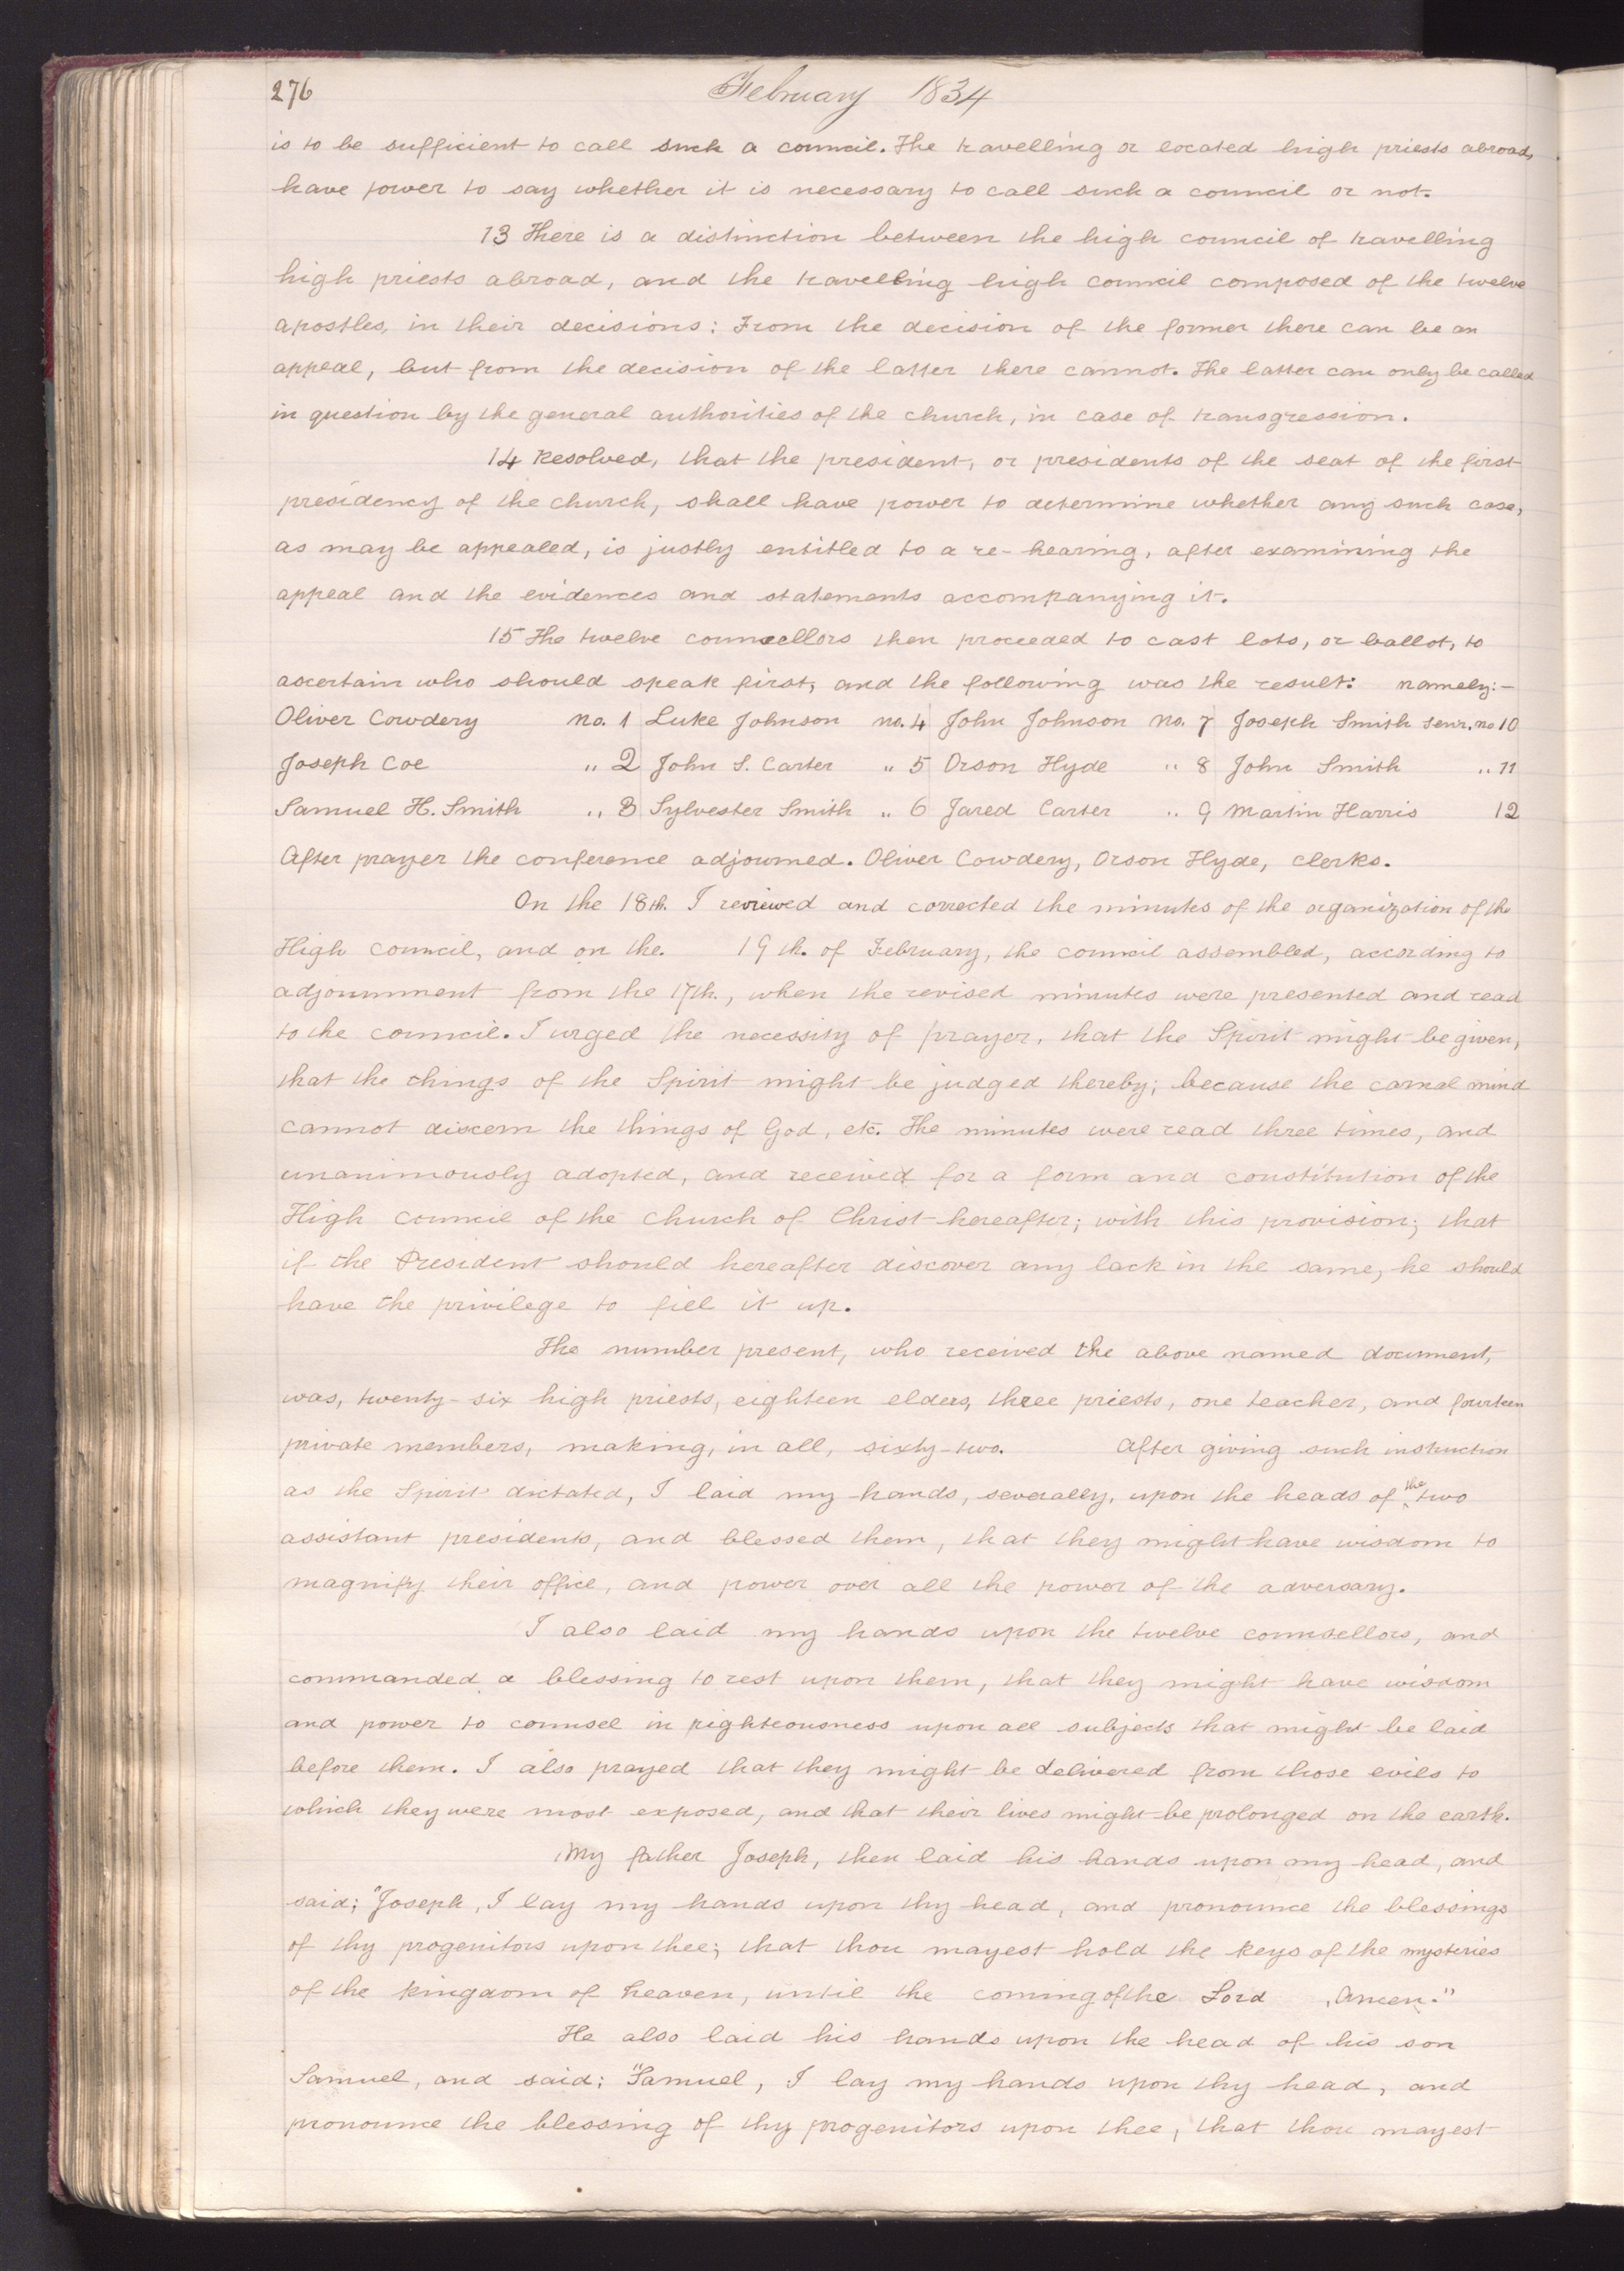 276 February 1834
is to be sufficient to call such a council. The travelling or located high priests abroad,
have power to say whether it is necessary to call such a council or not.
13 There is a distinction between the high council of travelling
high priests abroad, and the travelling high council composed of the twelve
apostles, in their decisions: From the decision of the former there can be an
appeal, but from the decision of the latter there cannot. The latter can only be called
in question by the general authorities of the church, in case of transgression.
14 Resolved, that the president, or presidents of the seat of the first
presidency of the church, shall have power to determine whether any such case,
as may be appealed, is justly entitled to a re-hearing, after examining the
appeal and the evidences and statements accompanying it.
15 The twelve councellors then proceeded to cast lots, or ballot, to
ascertain who should speak first, and the following was the result: namely:—
Oliver Cowdery no. 1 Luke Johnson no. 4 John Johnson no. 7 Joseph Smith senr. no 10
Joseph Coe " 2 John S. Carter " 5 Orson Hyde " 8 John Smith " 11
Samuel H. Smith " 3 Sylvester Smith " 6 Jared Carter " 9 Martin Harris 12
After prayer the conference adjourned. Oliver Cowdery, Orson Hyde, clerks.
On the 18th. I reviewed and corrected the minutes of the organization of the
High Council, and on the. 19th. of February, the council assembled, according to
adjournment from the 17th., when the revised minutes were presented and read
to the council. I urged the necessity of prayer, that the Spirit might be given,
that the things of the Spirit might be judged thereby; because the carnal mind
cannot discern the things of God, etc. The minutes were read three times, and
unanimously adopted, and received for a form and constitution of the
High Council of the Church of Christ hereafter; with this provision; that
if the President should hereafter discover any lack in the same, he should
have the privilege to fill it up.
The number present, who received the above named document,
was, twenty-six high priests, eighteen elders, three priests, one teacher, and fourteen
private members, making, in all, sixty-two. After giving such instruction
as the Spirit dictated, I laid my hands, severally, upon the heads of the two
assistant presidents, and blessed them, that they might have wisdom to
magnify their office, and power over all the power of the adversary.
I also laid my hands upon the twelve counsellors, and
commanded a blessing to rest upon them, that they might have wisdom
and power to counsel in righteousness upon all subjects that might be laid
before them. I also prayed that they might be delivered from those evils to
which they were most exposed, and that their lives might be prolonged on the earth.
My father Joseph, then laid his hands upon my head, and
said; "Joseph, I lay my hands upon thy head, and pronounce the blessings
of thy progenitors upon thee; that thou mayest hold the keys of the mysteries
of the kingdom of heaven, until the coming of the Lord , Amen."
He also laid his hands upon the head of his son
Samuel, and said; "Samuel, I lay my hands upon thy head, and
pronounce the blessing of thy progenitors upon thee, that thou mayest